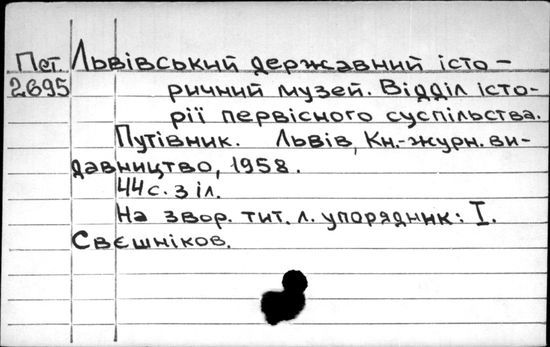 Пст. Львівський державний істо-
2695 ричний музей. Відділ істо-
рії первісного суспільства.
Путівник. Львів, Кн.-журн. ви-
давництво, 1958.
44 с. з іл.
На звор. тит. л. упорядник: І.
Свєшніков.